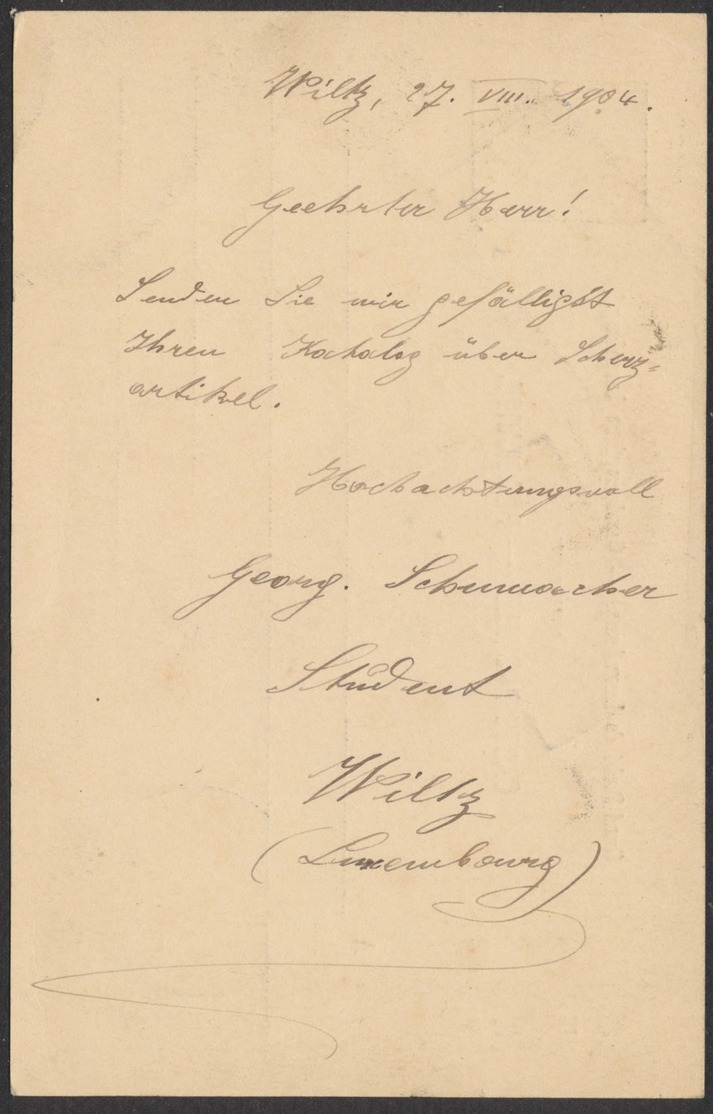 Wiltz, 27. VIII. 1904.
Geehrter Herr!
Senden Sie mir gefälligst
Ihren Katalog über Scherz-
artikel.
Hochachtungsvoll
Georg. Schumacher
Student
Wiltz
(Luxembourg)